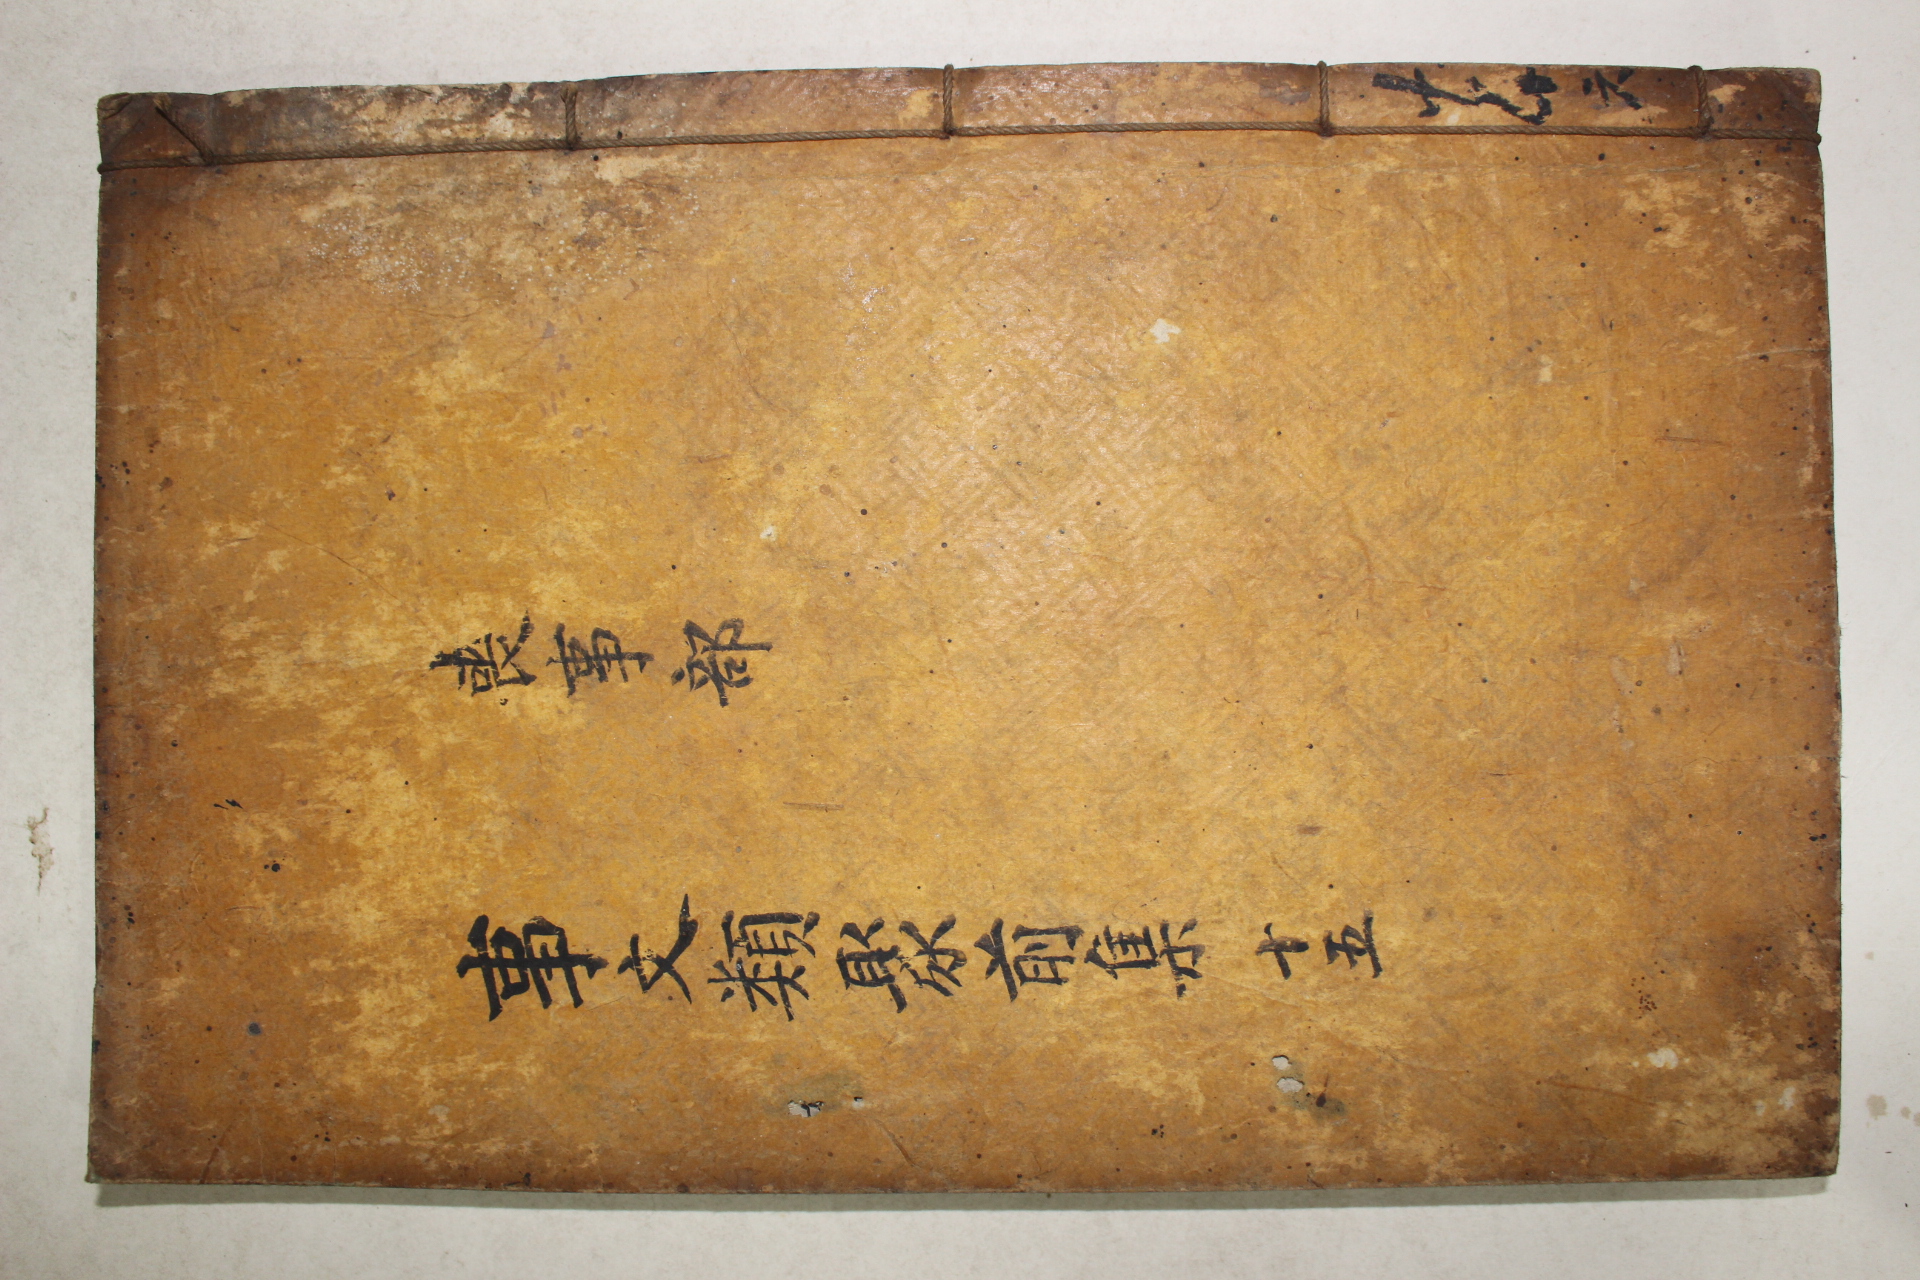 共六十六
喪事部
事文類聚前集 十五